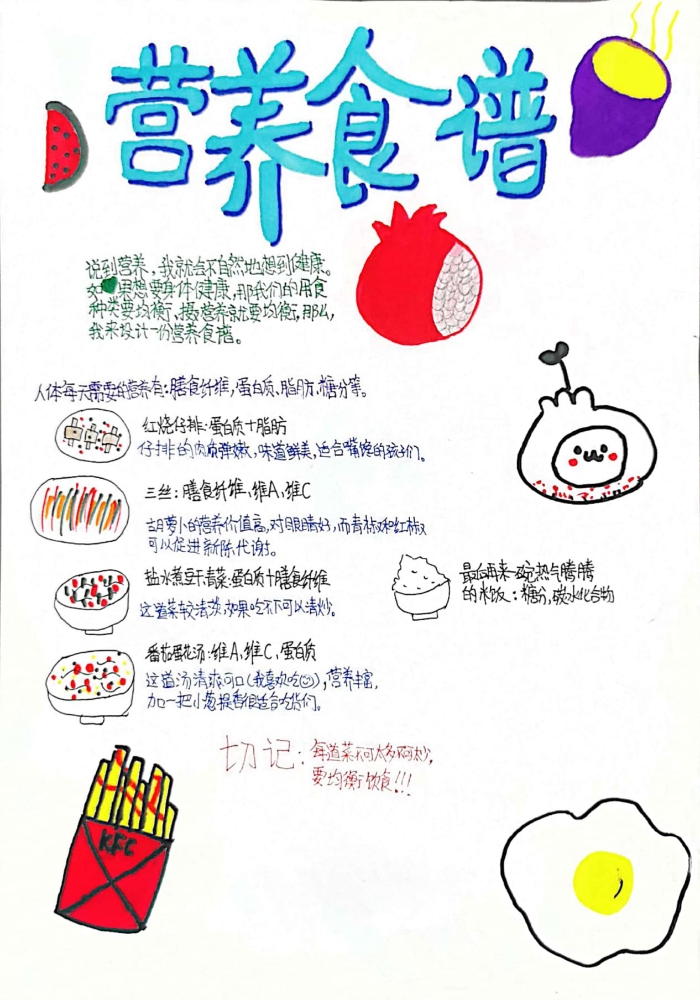 营养食谱
说到营养，我就会不自然地想到健康。
如果想要身体健康，那我们的用食
种类要均衡、摄营养就要均衡，那么，
我来设计一份营养食谱。
人体每天需要的营养有：膳食纤维，蛋白质、脂肪、糖分等。
红烧仔排：蛋白质＋脂肪
仔排的肉质弹嫩，味道鲜美，适合嘴馋的孩子们。
三丝：膳食纤维、维A、维C
胡萝卜的营养价值高，对眼睛好，而青椒和红椒
可以促进新陈代谢。
盐水煮豆干青菜：蛋白质＋膳食纤维
这道菜较清淡，如果吃不下可以清炒。
番茄蛋花汤：维A、维C、蛋白质
这道汤清爽可口(我喜欢吃☺)，营养丰富，
加一把小葱提香很适合吃货们。
最后再来一碗热气腾腾
的米饭：糖分，碳水化合物
切记：每道菜不可太多不可太少，
要均衡饮食!!!
KFC